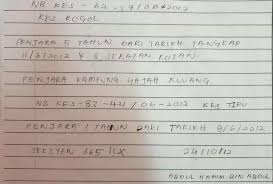 NB KES - 62 - 37/06/2012
KES ROGOL
PENJARA 5 TAHUN DARI TARIKH TANGKAP
11/6/2012 & 3 SEBATAN ROTAN
PENJARA KAMPUNG GAJAH KLUANG
NB KES-83-421/06-2012 KES TIPU
PENJARA 1 TAHUN DARI TARIKH 8/6/2012
SEKSYEN 365 24/10/12
ABDUL HAMIM BIN ABDUL